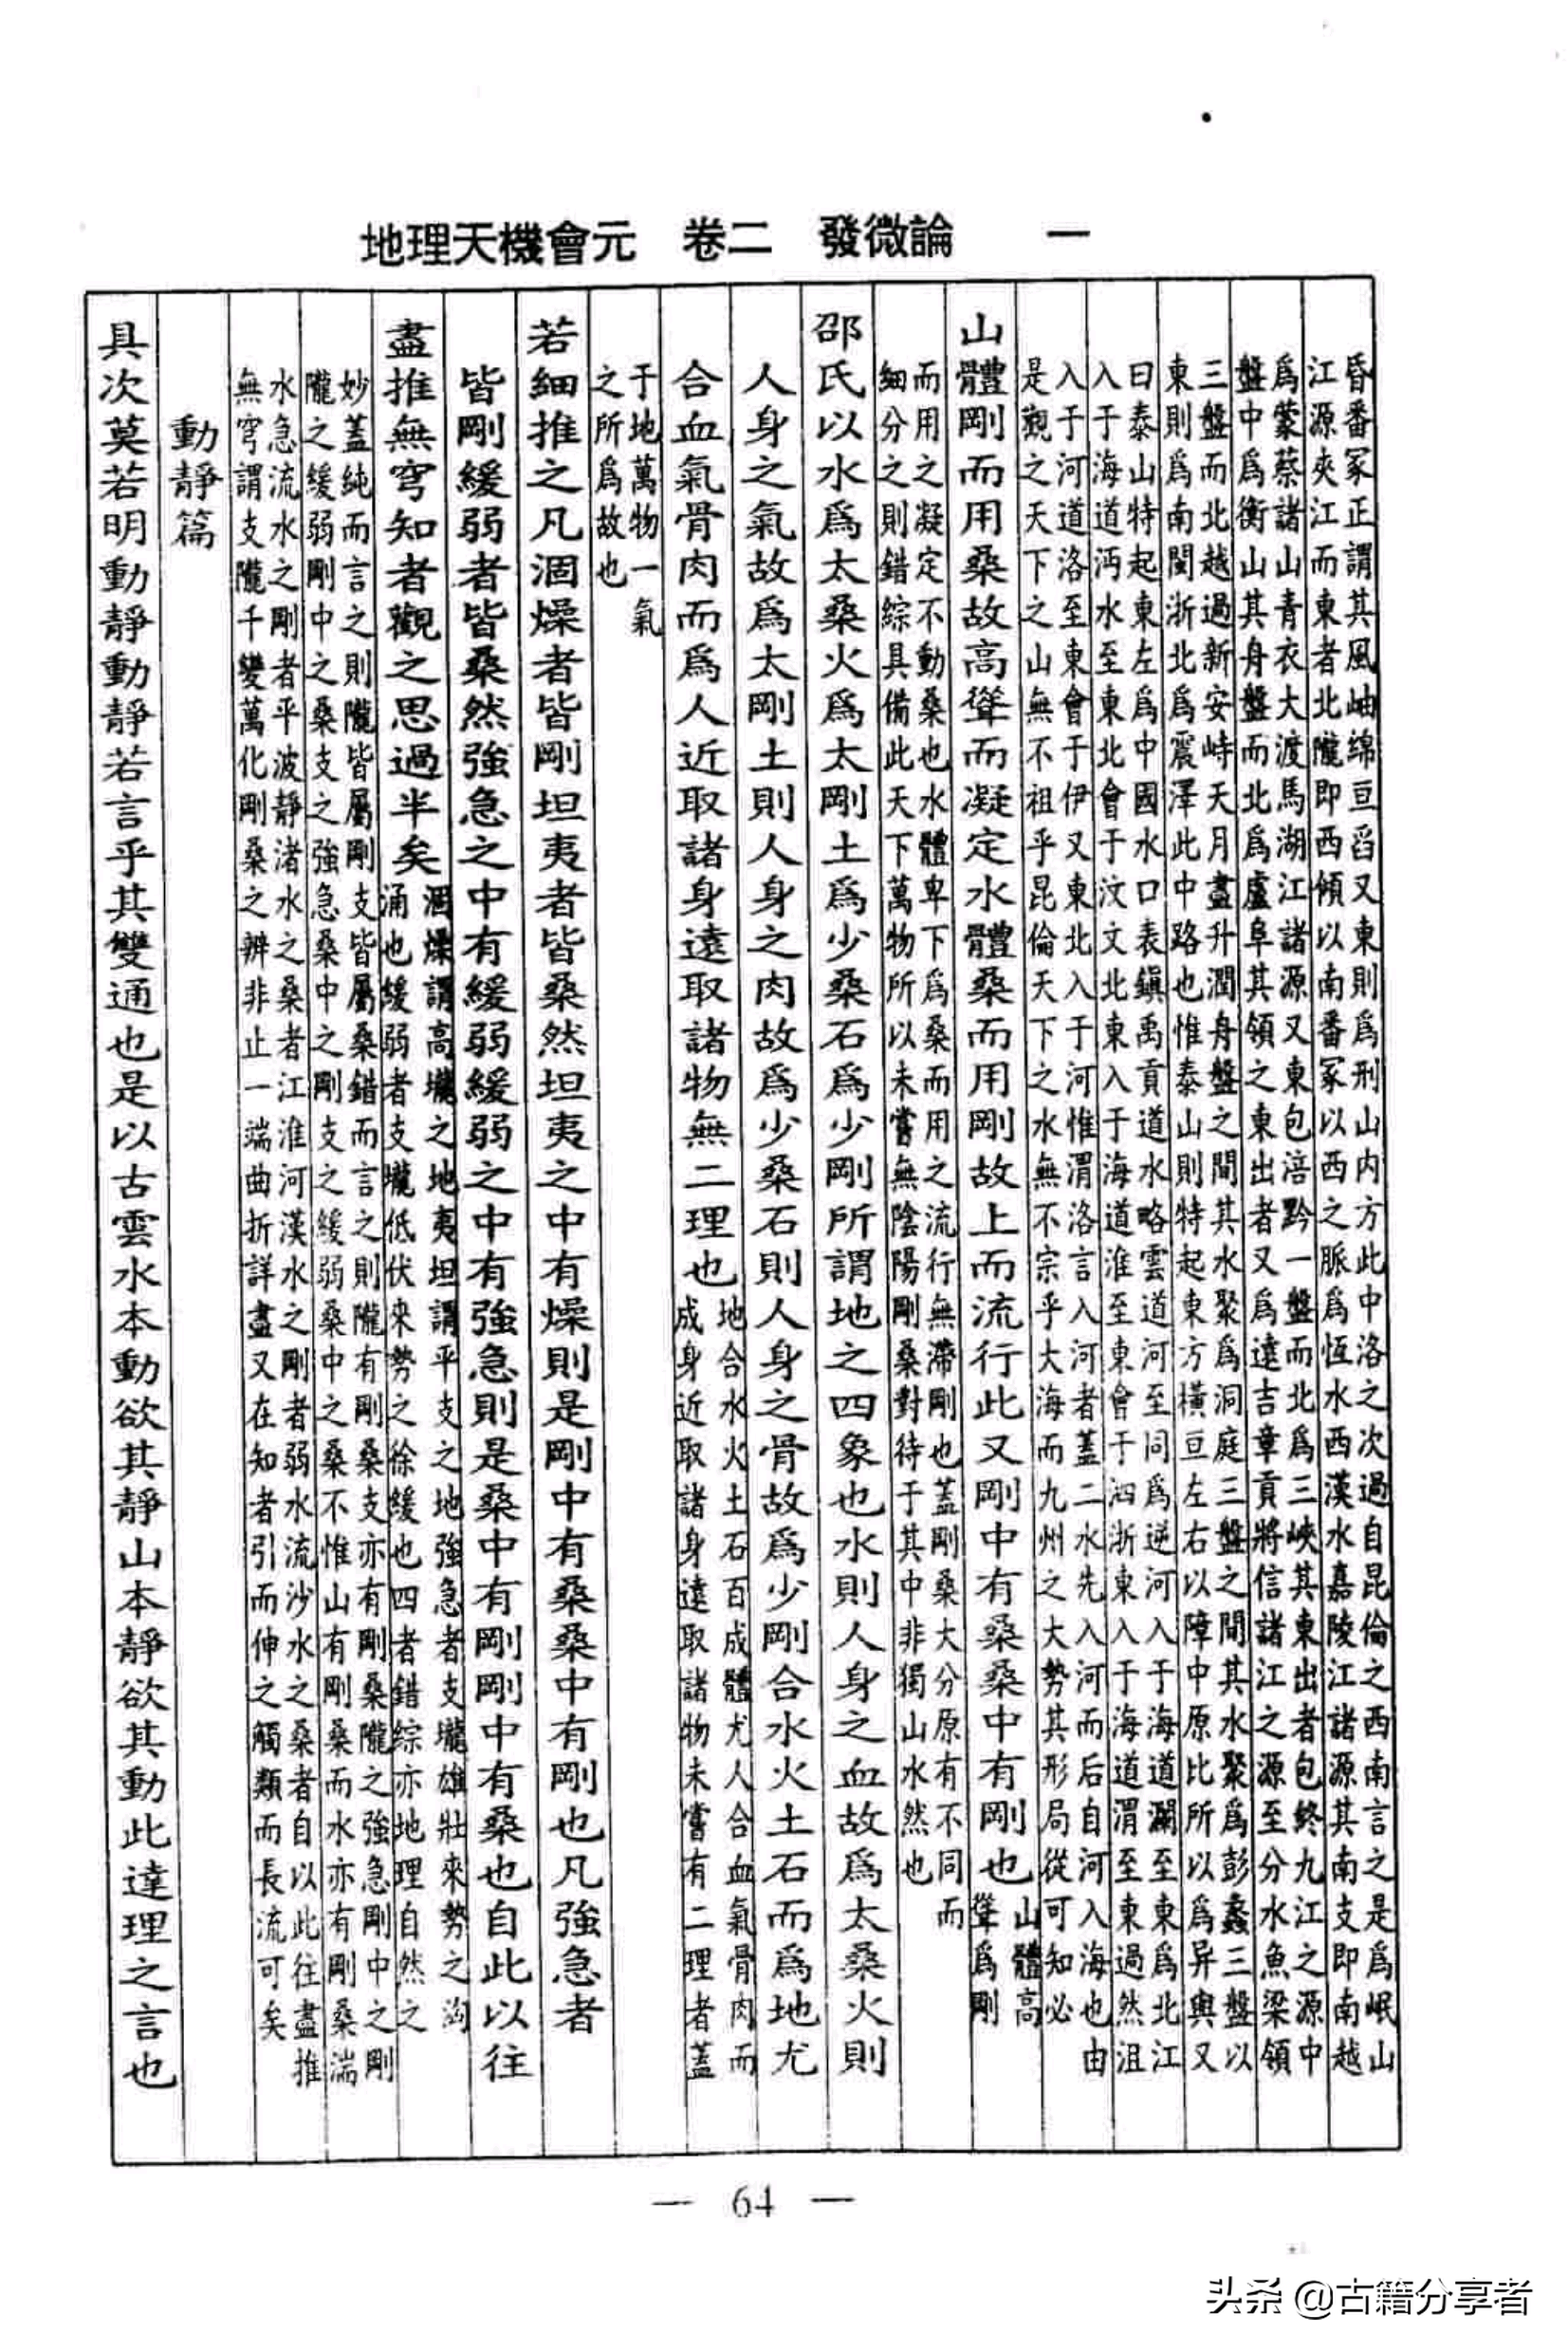 地理天機會元 卷二 發微論 一
昏番冢正謂其風岫綿亘舀又東則爲刑山内方此中洛之次過自昆倫之西南言之是爲岷山
江源夾江而東者北隴即西傾以南番冢以西之脈爲恆水西漢水嘉陵江諸源其南支即南越
爲蒙蔡諸山青衣大渡馬湖江諸源又東包涪黔一盤而北爲三峽其東出者包終九江之源中
盤中爲衡山其身盤而北爲盧阜其領之東出者又爲遠吉章貢將信諸江之源至分水魚梁領
三盤而北越過新安峙天月盡升潤舟盤之間其水聚爲洞庭三盤之間其水聚爲彭蠡三盤以
東則爲南閩浙北爲震澤此中路也惟泰山則特起東方橫亘左右以障中原比所以爲异輿又
曰泰山特起東左爲中國水口表鎭禹貢道水略雲道河至同爲逆河入于海道瀾至東爲北江
入于海道沔水至東北會于汶文北東入于海道淮至東會于泗浙東入于海道渭至東過然沮
入于河道洛至東會于伊又東北入于河惟渭洛言入河者蓋二水先入河而后自河入海也由
是觀之天下之山無不祖乎昆倫天下之水無不宗乎大海而九州之大勢其形局從可知必
山體剛而用桑故高聳而凝定水體桑而用剛故上而流行此又剛中有桑桑中有剛也
山體高
聳爲剛
而用之凝定不動桑也水體卑下爲桑而用之流行無滯剛也蓋剛桑大分原有不同而
細分之則錯綜具備此天下萬物所以未嘗無陰陽剛桑對待于其中非獨山水然也
邵氏以水爲太桑火爲太剛土爲少桑石爲少剛所謂地之四象也水則人身之血故爲太桑火則
人身之氣故爲太剛土則人身之肉故爲少桑石則人身之骨故爲少剛合水火土石而爲地尤
合血氣骨肉而爲人近取諸身遠取諸物無二理也
地合水火土石百成體尤人合血氣骨肉而
成身近取諸身遠取諸物未嘗有二理者蓋
于地萬物一氣
之所爲故也
若細推之凡涸燥者皆剛坦夷者皆桑然坦夷之中有燥則是剛中有桑桑中有剛也凡強急者
皆剛緩弱者皆桑然強急之中有緩弱緩弱之中有強急則是桑中有剛剛中有桑也自此以往
盡推無穹知者觀之思過半矣
涸燥謂高壠之地夷坦謂平支之地強急者支壠雄壯來勢之洶
涌也緩弱者支壠低伏來勢之徐緩也四者錯綜亦地理自然之
妙蓋純而言之則隴皆屬剛支皆屬桑錯而言之則隴有剛桑支亦有剛桑隴之強急剛中之剛
隴之緩弱剛中之桑支之強急桑中之剛支之緩弱桑中之桑不惟山有剛桑而水亦有剛桑湍
水急流水之剛者平波靜渚水之桑者江淮河漢水之剛者弱水流沙水之桑者自以此往盡推
無穹謂支隴千變萬化剛桑之辨非止一端曲折詳盡又在知者引而伸之觸類而長流可矣
動靜篇
具次莫若明動靜動靜若言乎其雙通也是以古雲水本動欲其靜山本靜欲其動此達理之言也
— 64 —
头条 @古籍分享者